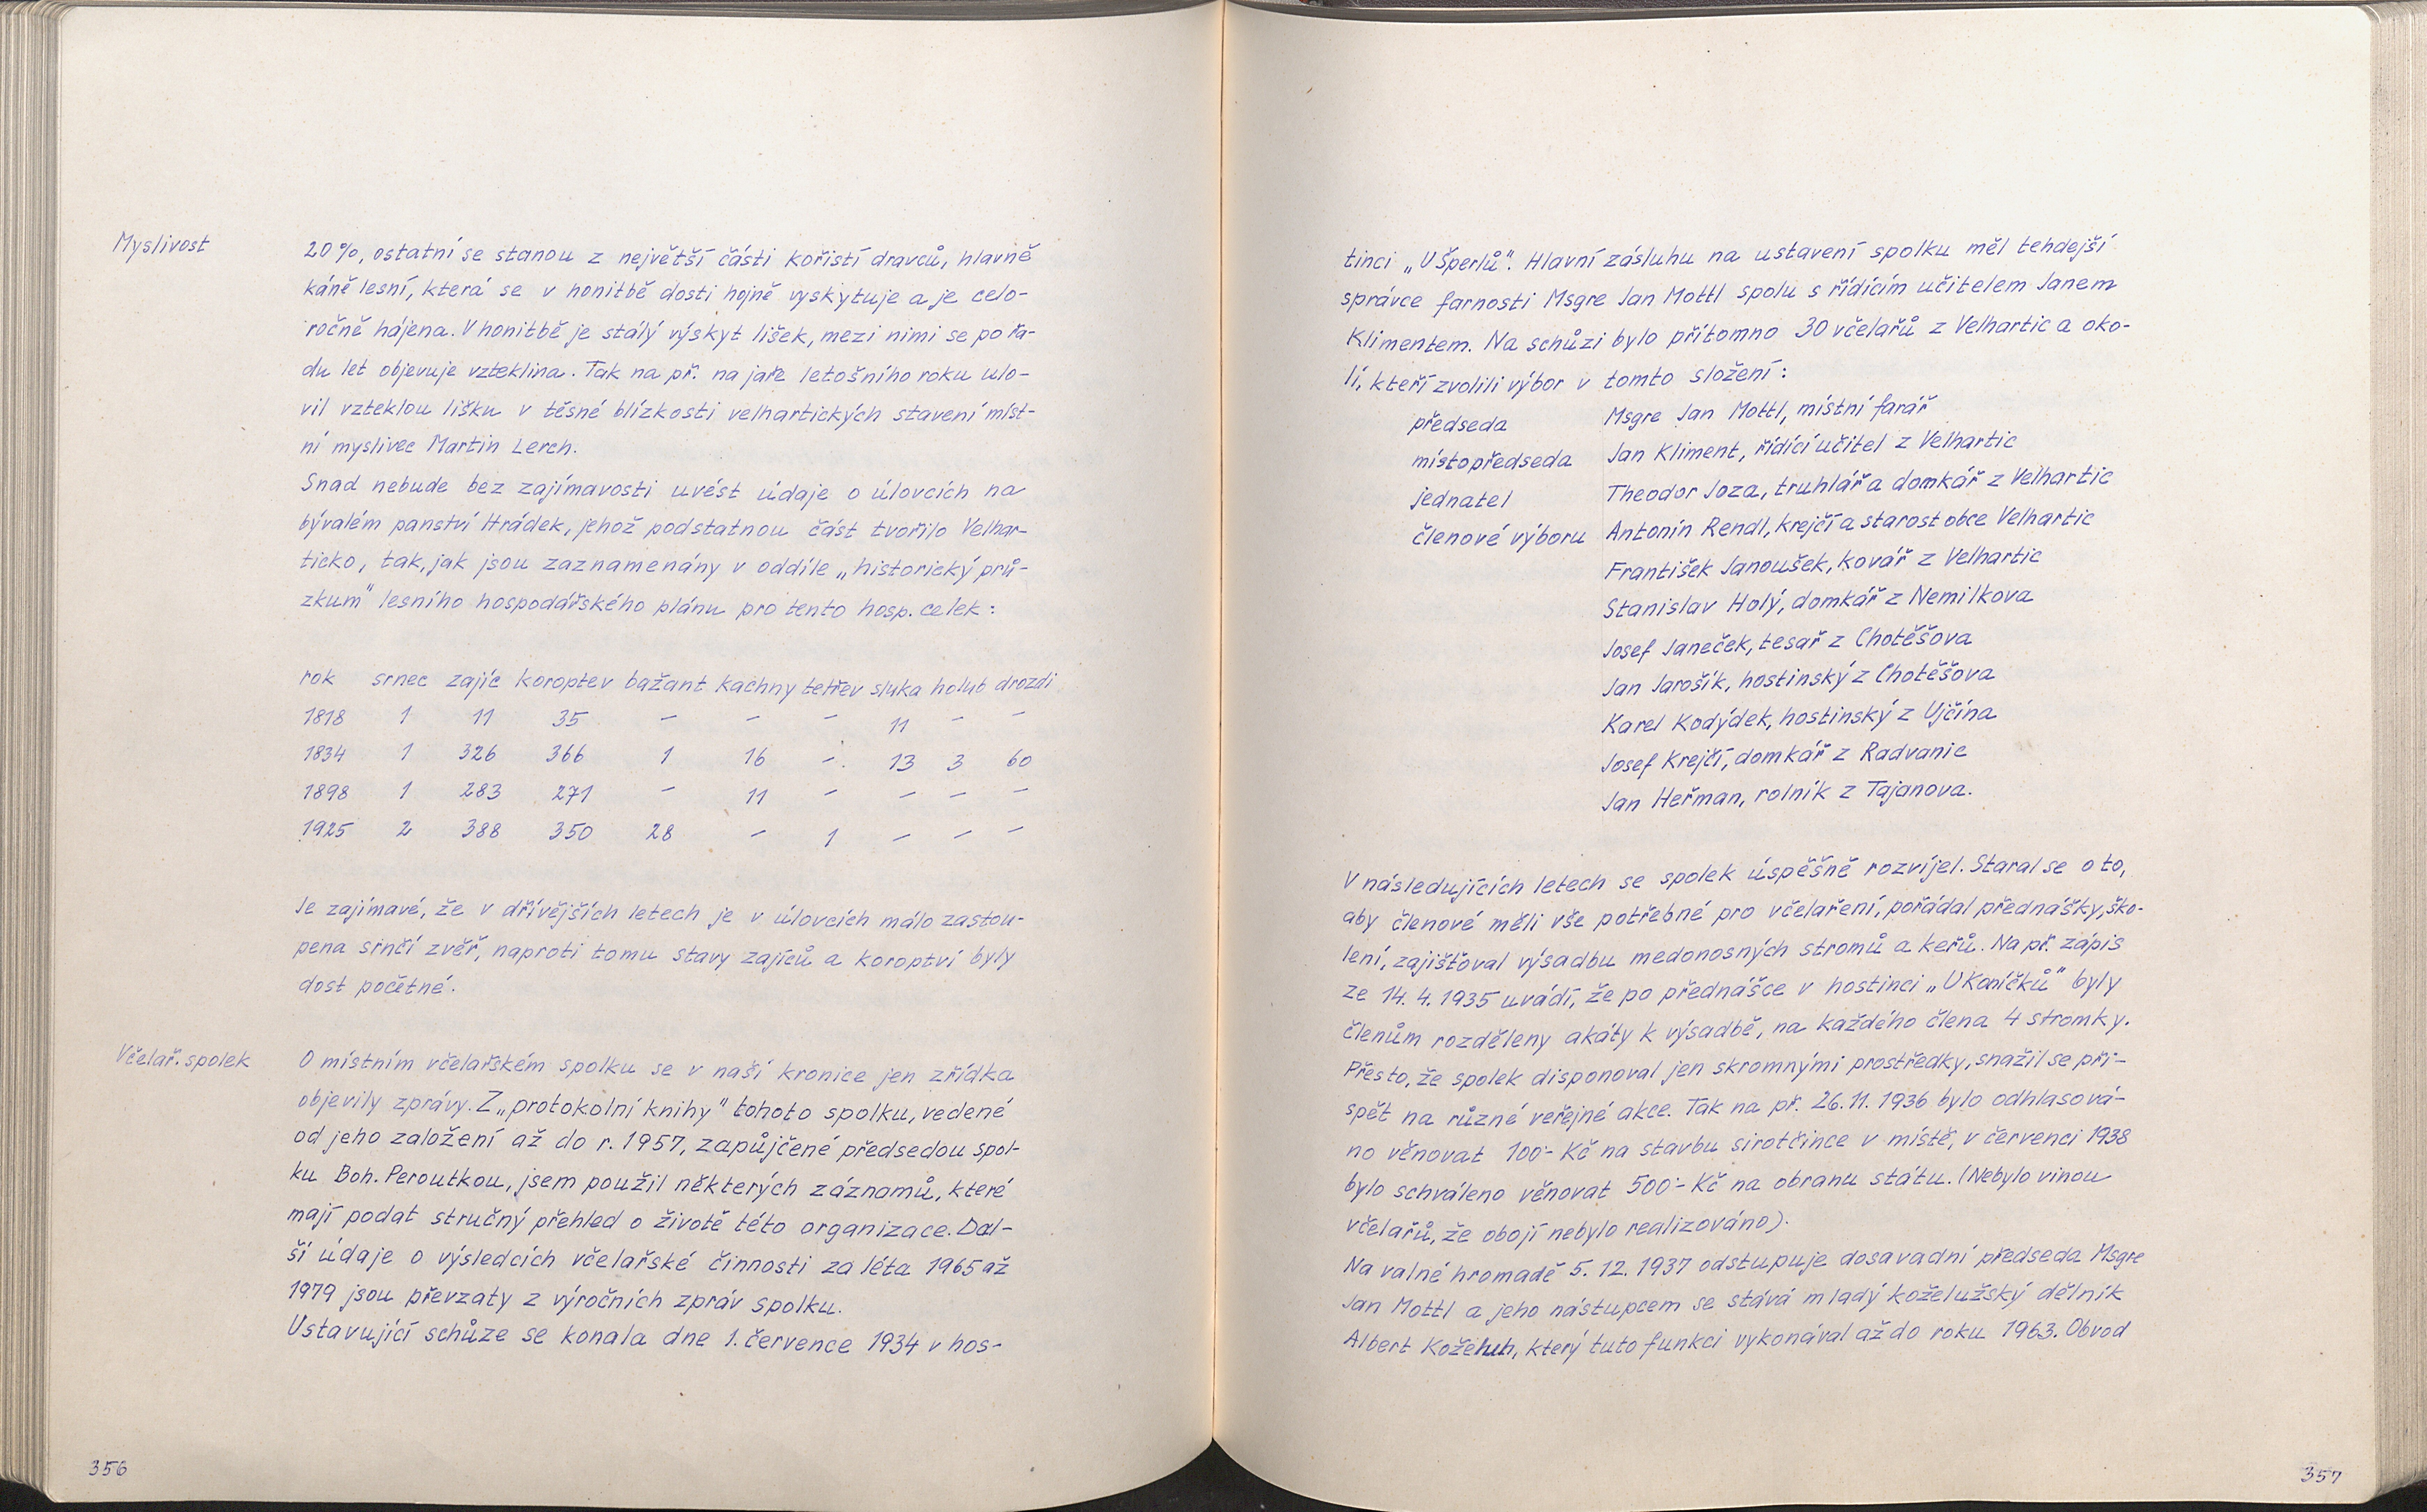 Myslivost
20%, ostatní se stanou z největší části kořistí dravců, hlavně
káně lesní, která se v honitbě dosti hojně vyskytuje a je celo-
ročně hájena. V honitbě je stálý výskyt lišek, mezi nimi se po řa-
du let objevuje vzteklina. Tak na př. na jaře letošního roku ulo-
vil vzteklou lišku v těsné blízkosti velhartických stavení míst-
ní myslivec Martin Lerch.
Snad nebude bez zajímavosti uvést údaje o úlovcích na
bývalém panství Hrádek, jehož podstatnou část tvořilo Velhar-
ticko, tak, jak jsou zaznamenány v oddíle „historický prů-
zkum" lesního hospodářského plánu pro tento hosp. celek:
rok srnec zajíc koroptev bažant kachny tetřev sluka holub drozdi
1818 1 11 35 – – – 11 – –
1834 1 326 366 1 16 – 13 3 60
1898 1 283 271 – 11 – – – –
1925 2 388 350 28 – 1 – – –
Je zajímavé, že v dřívějších letech je v úlovcích málo zastou-
pena srnčí zvěř, naproti tomu stavy zajíců a koroptví byly
dost početné.
Včelař. spolek
O místním včelařském spolku se v naší kronice jen zřídka
objevily zprávy. Z „protokolní knihy" tohoto spolku, vedené
od jeho založení až do r. 1957, zapůjčené předsedou spol-
ku Boh. Peroutkou, jsem použil některých záznamů, které
mají podat stručný přehled o životě této organizace. Dal-
ší údaje o výsledcích včelařské činnosti za léta 1965 až
1979 jsou převzaty z výročních zpráv spolku.
Ustavující schůze se konala dne 1. července 1934 v hos-
356
tinci „U Šperlů". Hlavní zásluhu na ustavení spolku měl tehdejší
správce farnosti Msgre Jan Mottl spolu s řídícím učitelem Janem
Klimentem. Na schůzi bylo přítomno 30 včelařů z Velhartic a oko-
lí, kteří zvolili výbor v tomto složení:
předseda Msgre Jan Mottl, místní farář
místopředseda Jan Kliment, řídící učitel z Velhartic
jednatel Theodor Joza, truhlář a domkář z Velhartic
členové výboru Antonín Rendl, krejčí a starost obce Velhartic
František Janoušek, kovář z Velhartic
Stanislav Holý, domkář z Nemilkova
Josef Janeček, tesař z Chotěšova
Jan Jarošík, hostinský z Chotěšova
Karel Kodýdek, hostinský z Ujčína
Josef Krejčí, domkář z Radvanic
Jan Heřman, rolník z Tajanova.
V následujících letech se spolek úspěšně rozvíjel. Staral se o to,
aby členové měli vše potřebné pro včelaření, pořádal přednášky, ško-
lení, zajišťoval výsadbu medonosných stromů a keřů. Na př. zápis
ze 14. 4. 1935 uvádí, že po přednášce v hostinci „U Koníčků" byly
členům rozděleny akáty k výsadbě, na každého člena 4 stromky.
Přesto, že spolek disponoval jen skromnými prostředky, snažil se při-
spět na různé veřejné akce. Tak na př. 26. 11. 1936 bylo odhlasová-
no věnovat 100·- Kč na stavbu sirotčince v místě, v červenci 1938
bylo schváleno věnovat 500·- Kč na obranu státu. (Nebylo vinou
včelařů, že obojí nebylo realizováno).
Na valné hromadě 5. 12. 1937 odstupuje dosavadní předseda Msgre
Jan Mottl a jeho nástupcem se stává mladý koželužský dělník
Albert Koželuh, který tuto funkci vykonával až do roku 1963. Obvod
357